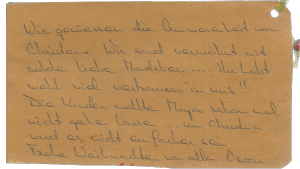 Wir geniessen die Anwesenheit von
Christiane Wir sind verwöhnt mit
solche liebe Mädchen ... Ihr habt
wohl viel vertrauen in uns!!
Die Kinder wollte Maya schon mal
nicht gehe lasse in Christine
wird es nicht einfacher sein
Frohe Weihnachte va alle Deran